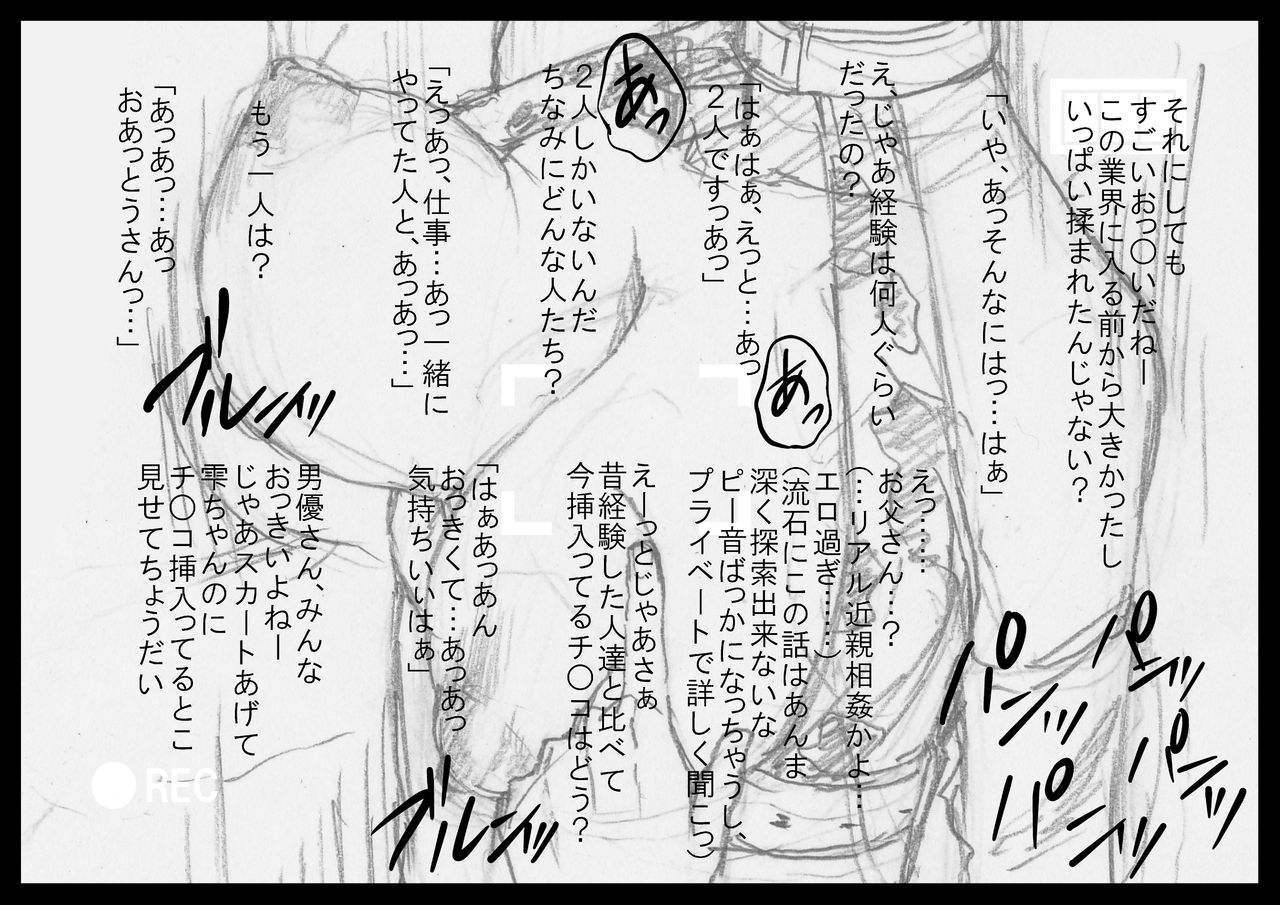 それにしても
すごいおっ〇いだねー
この業界に入る前から大きかったし
いっぱい揉まれたんじゃない？
「いや、あっそんなにはっ…はぁ」
え、じゃあ経験は何人ぐらい
だったの？
「はぁはぁ、えっと…あっ
２人ですっあっ」
あっ
２人しかいないんだ
ちなみにどんな人たち？
「えっあっ、仕事…あっ一緒に
やってた人と、あっあっ…」
もう一人は？
「あっあっ…あっ
おあっとうさんっ…」
ブルンィッ
あっ
えっ……
お父さん…？
(…リアル近親相姦かよ…
エロ過ぎ……)
(流石にこの話はあんま
深く探索出来ないな
ピー音ばっかになっちゃうし、
プライベートで詳しく聞こっ)
えーっとじゃあさぁ
昔経験した人達と比べて
今挿入ってるチ〇コはどう？
「はぁあっあん
おっきくて…あっあっ
気持ちいいはぁ」
男優さん、みんな
おっきいよねー
じゃあスカートあげて
雫ちゃんのに
チ〇コ挿入ってるとこ
見せてちょうだい
パンッ
パンッ
パンッ
パンッ
ブルンィッ
REC